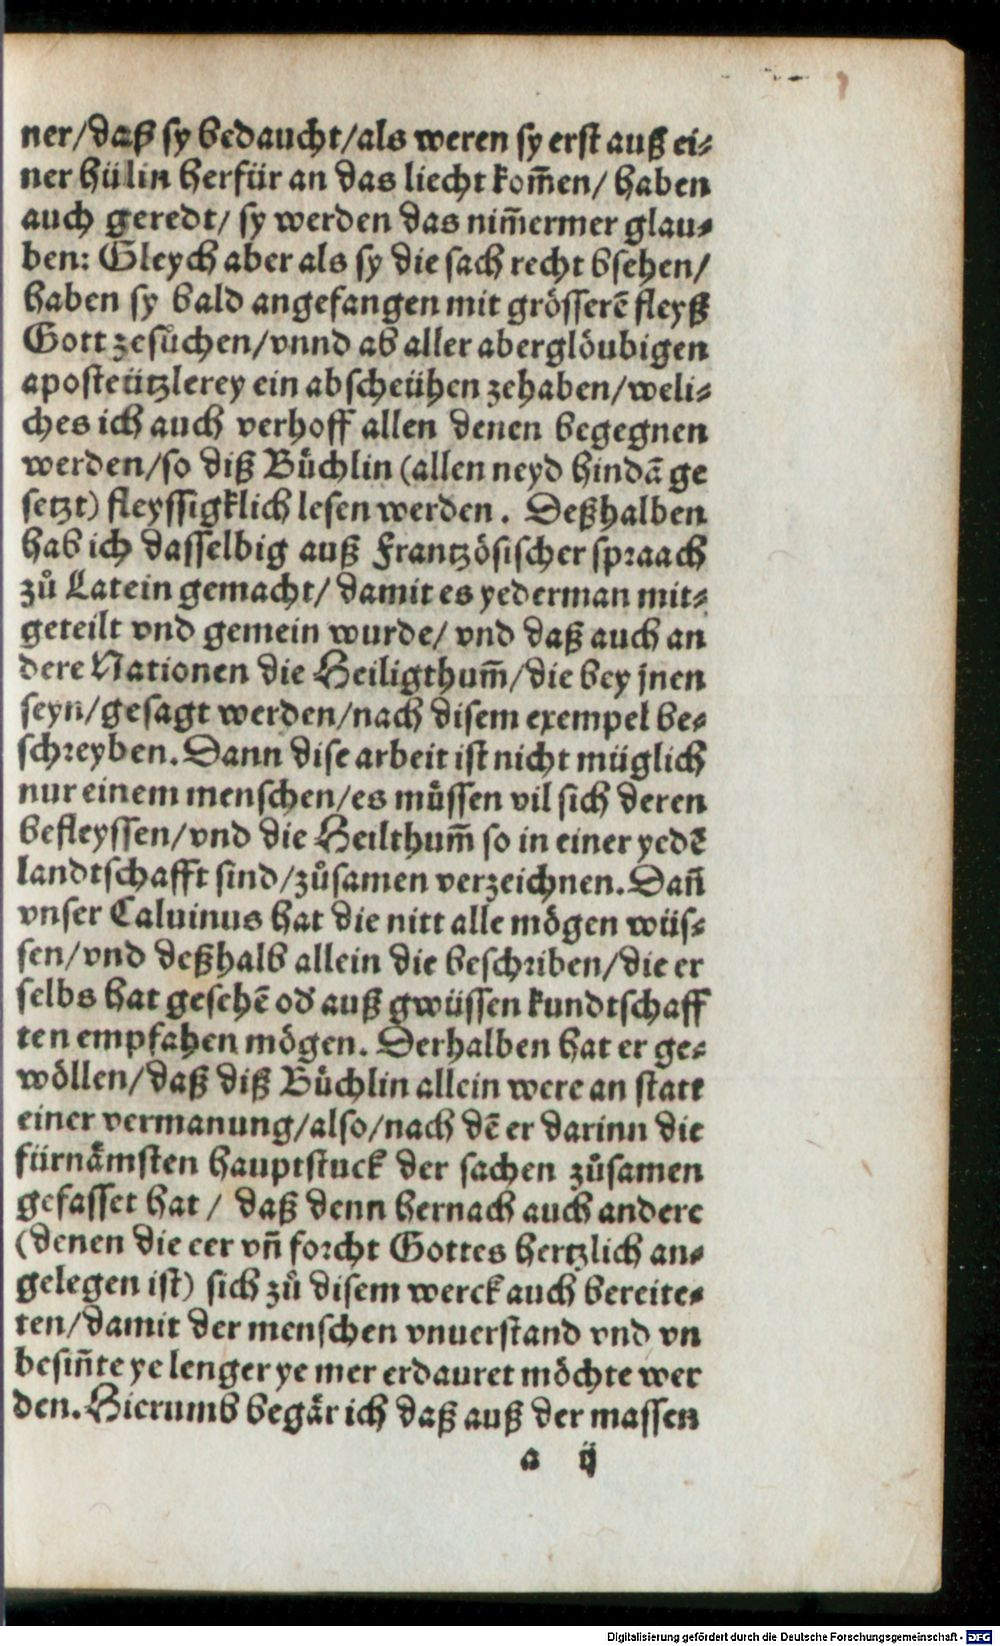 ner/daß sy bedaucht/als weren sy erst auß ei⸗
ner hülin herfür an das liecht kom̃en/ haben
auch geredt/ sy werden das nim̃ermer glau⸗
ben: Gleych aber als sy die sach recht bsehen/
haben sy bald angefangen mit grösserẽ fleyß
Gott zesůchen/vnnd ab aller aberglöubigen
aposteützlerey ein abscheühen zehaben/weli⸗
ches ich auch verhoff allen denen begegnen
werden/so diß Bůchlin (allen neyd hindã ge
setzt) fleyssigklich lesen werden. Deßhalben
hab ich dasselbig auß Frantzösischer spraach
zů Latein gemacht/ damit es yederman mit⸗
geteilt vnd gemein wurde/ vnd daß auch an
dere Nationen die Heiligthum̃/die bey jnen
seyn/gesagt werden/nach disem exempel be⸗
schreyben. Dann dise arbeit ist nicht müglich
nur einem menschen/es müssen vil sich deren
befleyssen/vnd die Heilthum̃ so in einer yedẽ
landtschafft sind/zůsamen verzeichnen. Dañ
vnser Caluinus hat die nitt alle mögen wüs⸗
sen/vnd deßhalb allein die beschriben/die er
selbs hat gesehẽ od auß gwüssen kundtschaff
ten empfahen mögen. Derhalben hat er ge⸗
wöllen/daß diß Bůchlin allein were an statt
einer vermanung/also/nach dẽ er darinn die
fürnämsten hauptstuck der sachen zůsamen
gefasset hat/ daß denn hernach auch andere
(denen die eer vñ forcht Gottes hertzlich an⸗
gelegen ist) sich zů disem werck auch bereite⸗
ten/damit der menschen vnuerstand vnd vn
besiñte ye lenger ye mer erdauret möchte wer
den. Hierumb begär ich daß auß der massen
a ij
Digitalisierung gefördert durch die Deutsche Forschungsgemeinschaft - DFG